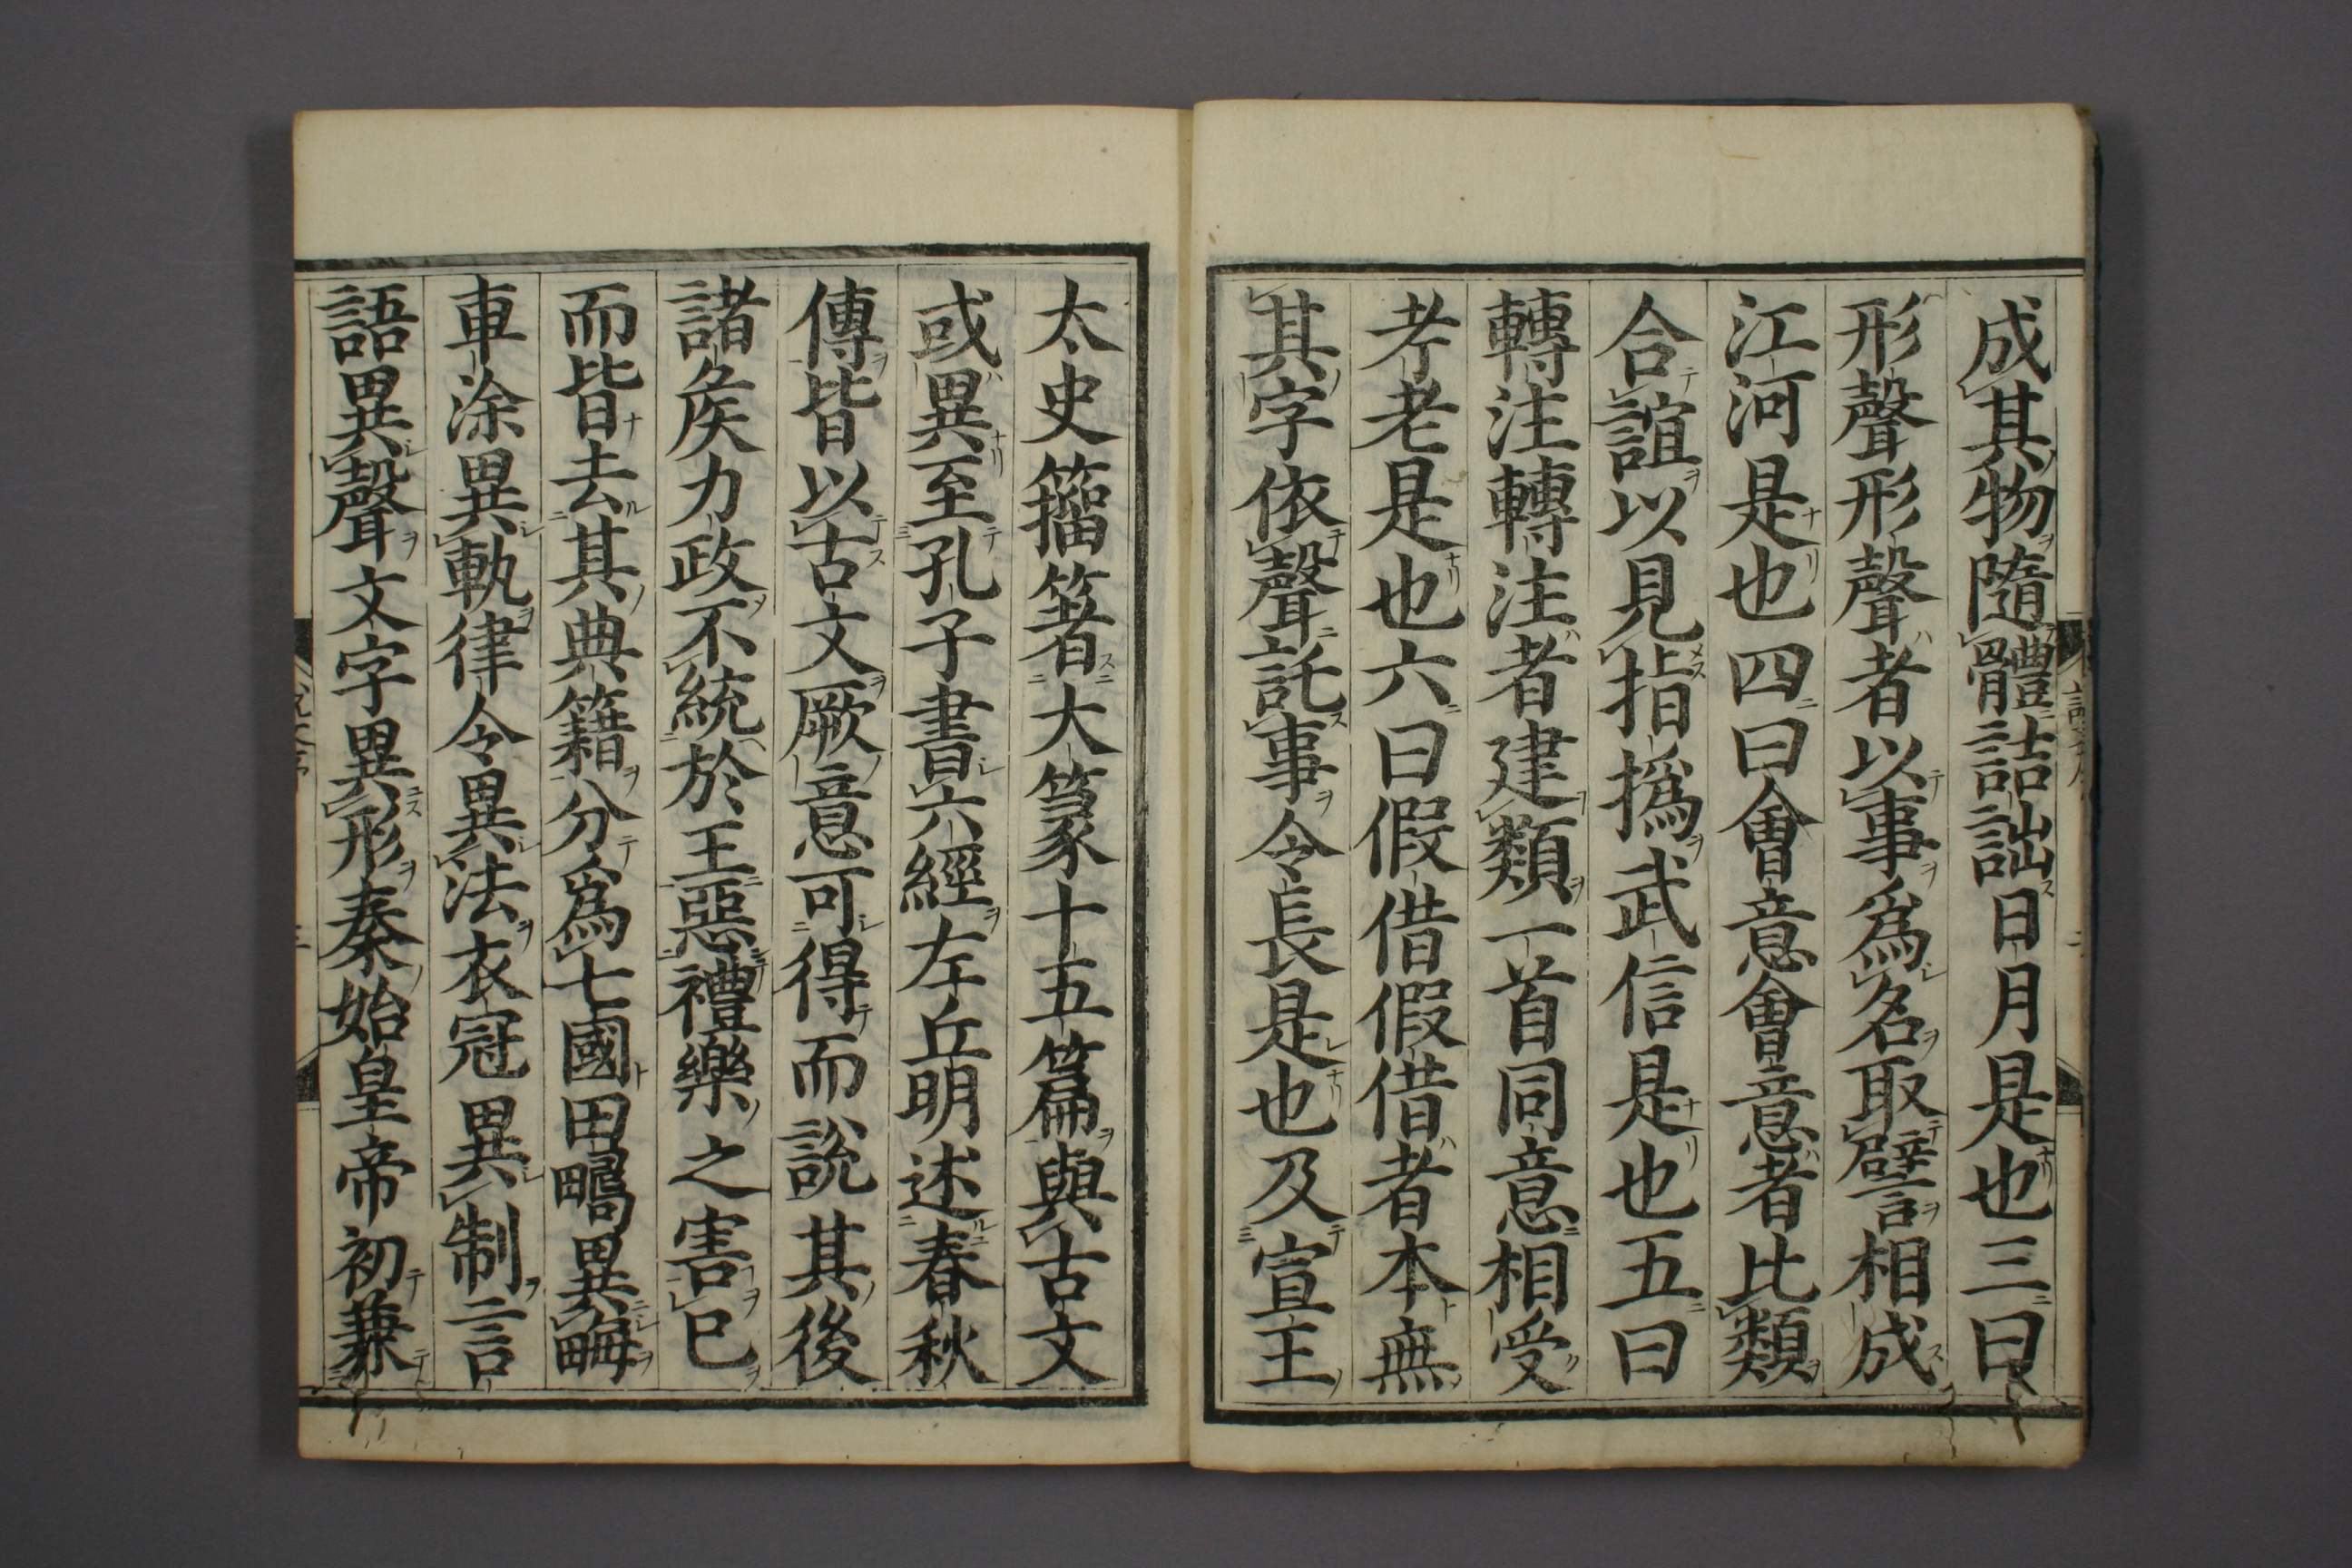 成其物隨體詰詘日月是也三曰
形聲形聲者以事爲名取譬相成
江河是也四曰會意會意者比類
合誼以見指撝武信是也五曰
轉注轉注者建類一首同意相受
考老是也六曰假借假借者本無
其字依聲託事令長是也及宣王
太史籀著大篆十五篇與古文
或異至孔子書六經左丘明述春秋
傳皆以古文厥意可得而說其後
諸矦力政不統於王惡禮樂之害已
而皆去其典籍分爲七國田疇異畮
車涂異軌律令異法衣冠異制言
語異聲文字異形秦始皇帝初兼